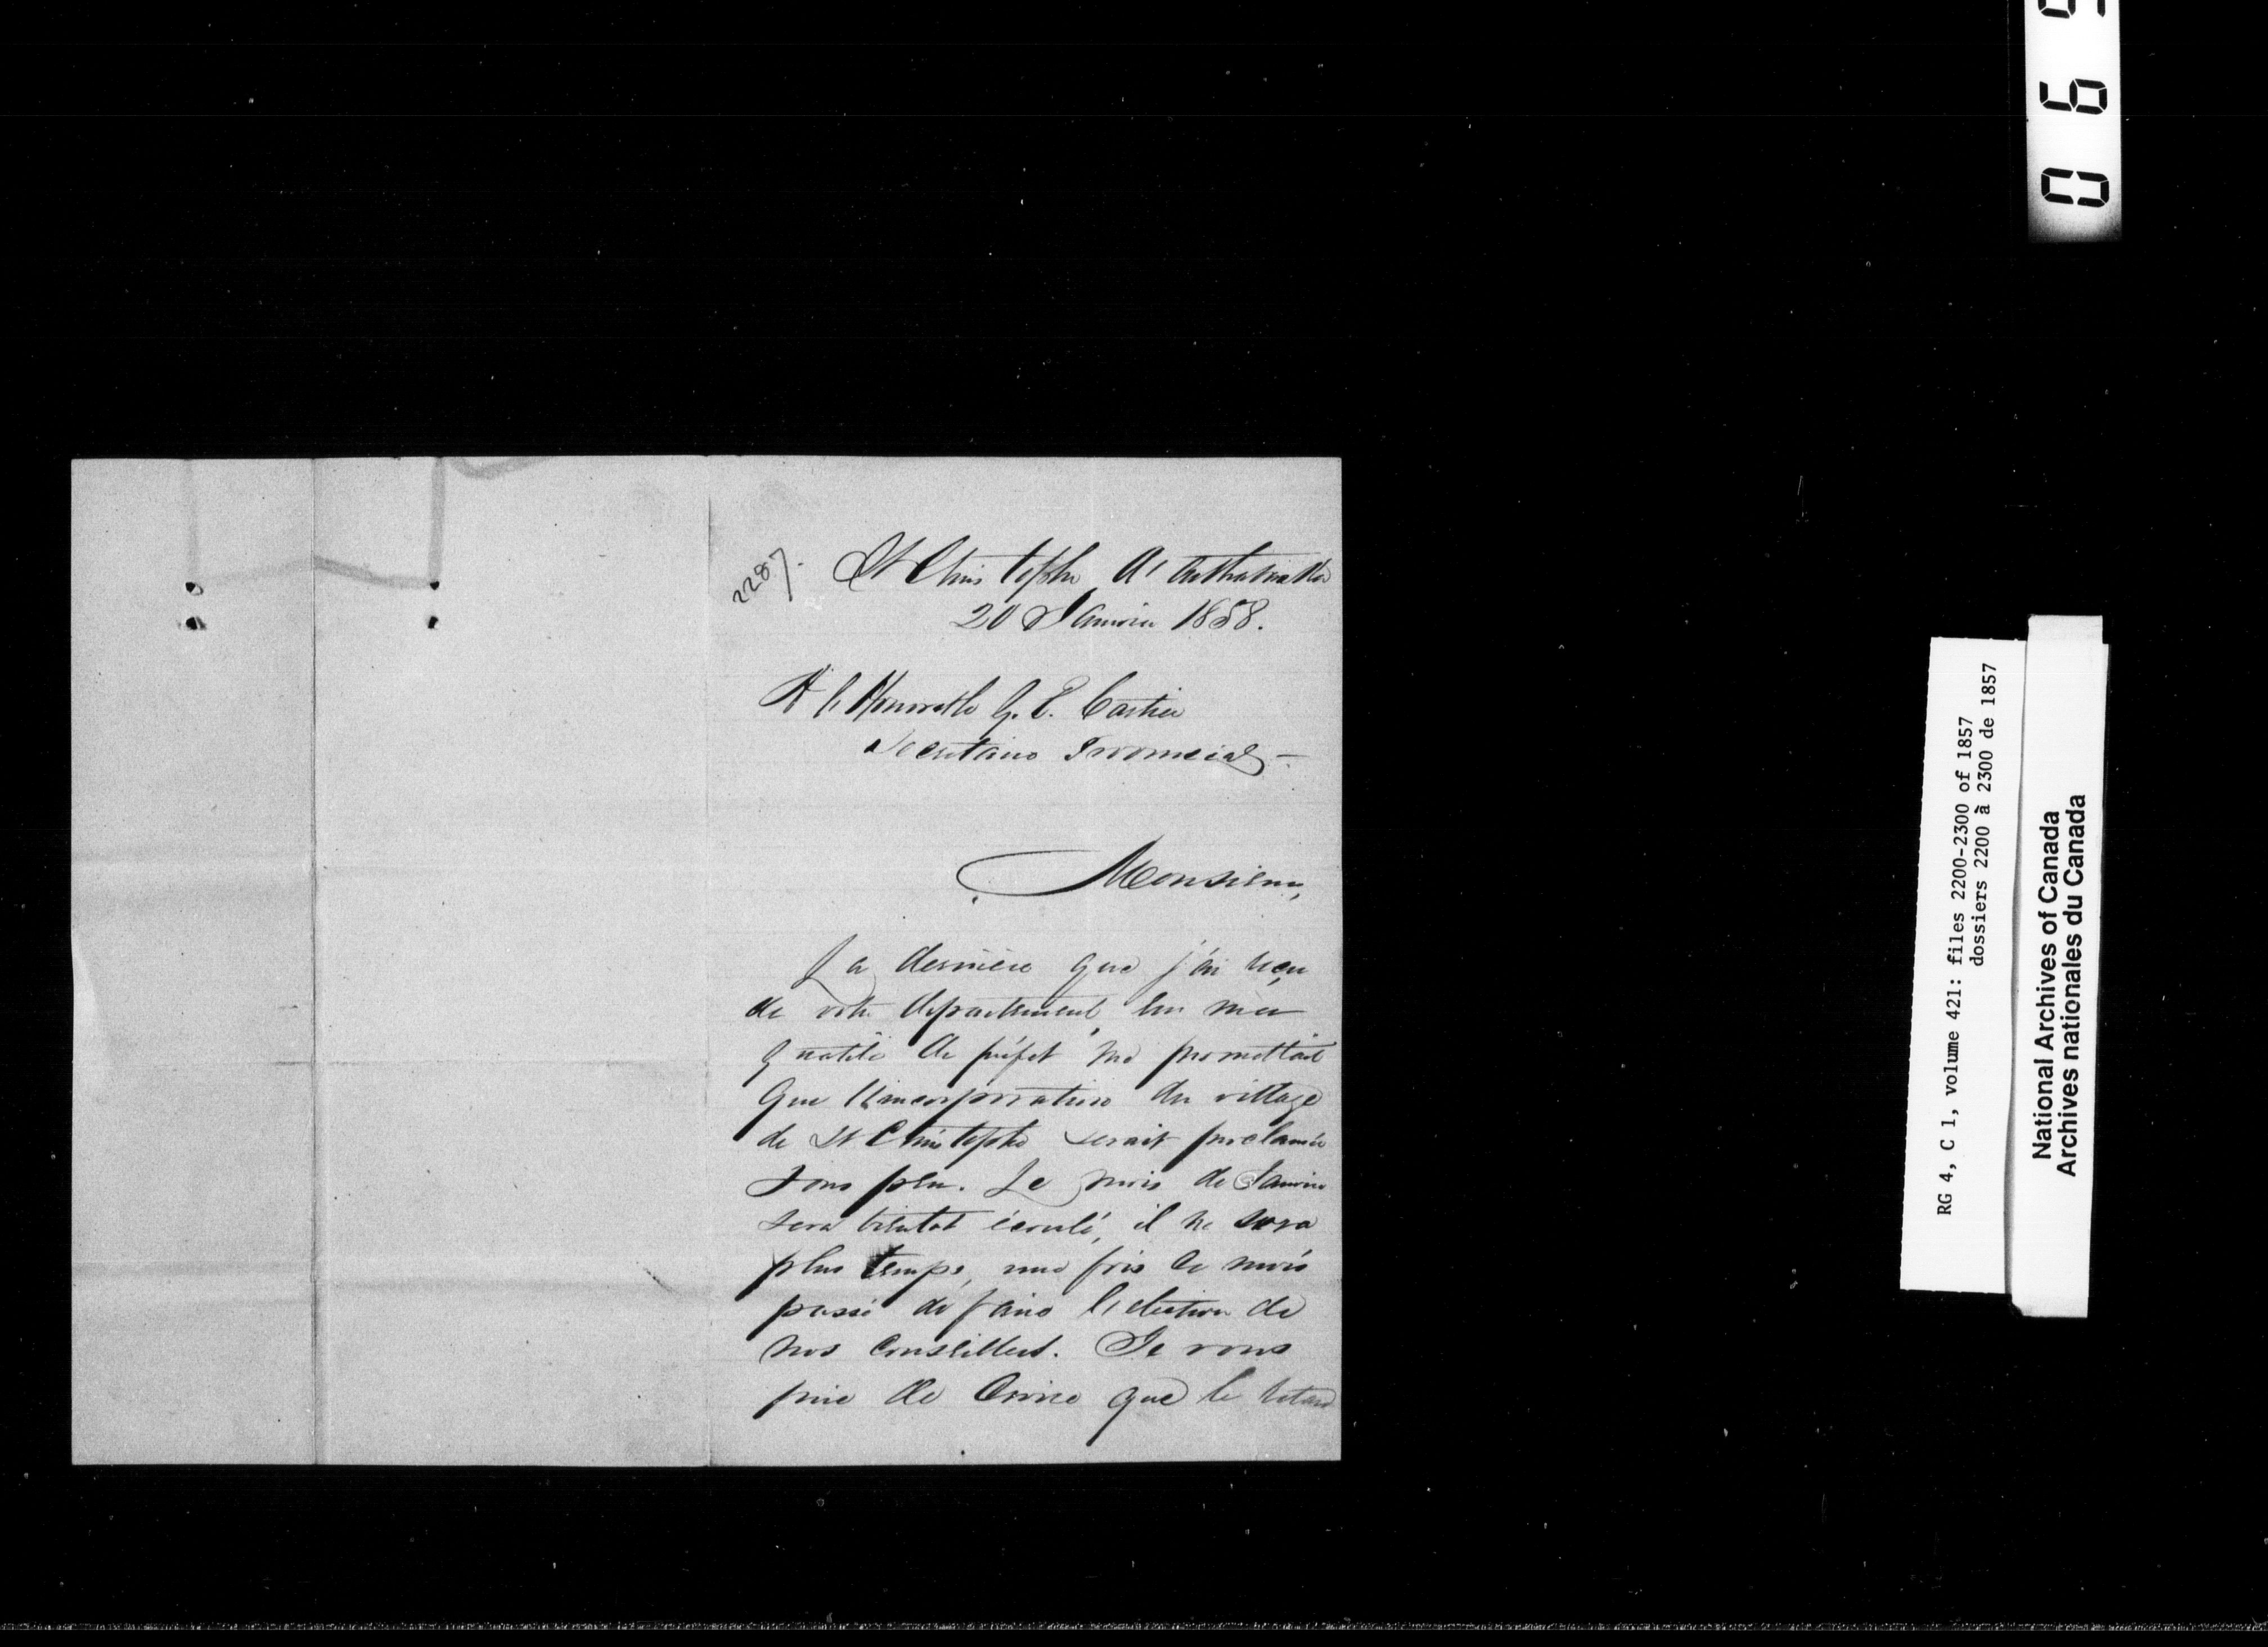 2287.
St Christophe d'Arthabaska
20 Janvier 1858.
A l'Honorable G. E. Cartier
Secretaire Provincial
Monsieur,
La derniere que j'ai reçu
de votre departement en ma
qualité de préfet me promettait
que l'incorporation du village
de St Christophe serait proclamée
sous peu. Le mois de Janvier
sera bientot écoulé, il ne sera
plus temps, une fois ce mois
passé de faire l'election de
nos conseillers. Je vous
prie de croire que le retard
069
RG 4, C 1, volume 421: files 2200-2300 of 1857
dossiers 2200 à 2300 de 1857
National Archives of Canada
Archives nationales du Canada